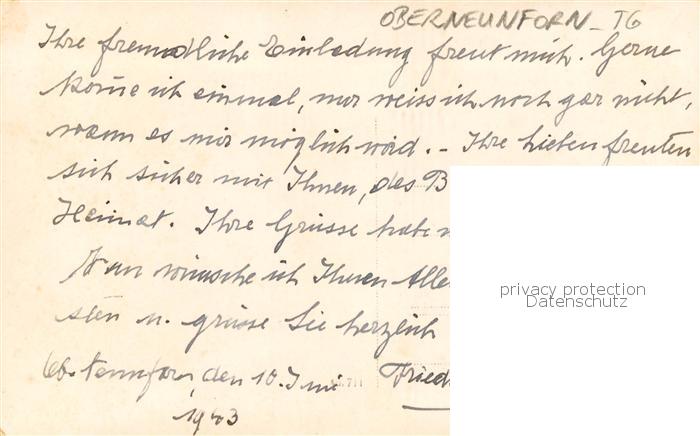 OBERNEUNFORN - TG
Ihre freundliche Einladung freut mich. Gerne
komme ich einmal, nur weiss ich noch gar nicht,
wann es mir möglich wird. - Ihre Lieben freuten
sich sicher mit Ihnen, des B
Heimat. Ihre Grüsse habe
Nun wünsche ich Ihnen Alle
sten u. grüsse Sie herzlich
Ob. Neunforn, den 10. Juni Fried
1943
privacy protection
Datenschutz